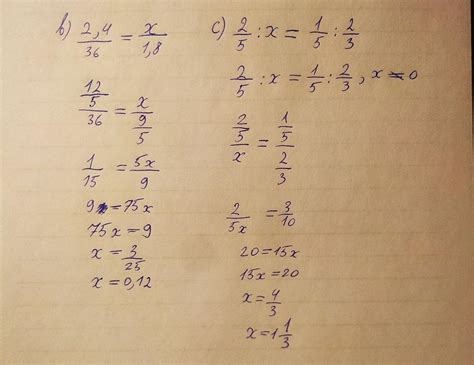 b) 2,4/36 = x/1,8
(12/5)/36 = x/(9/5)
1/15 = 5x/9
9 = 75x
75x = 9
x = 3/25
x = 0,12
c) 2/5 : x = 1/5 : 2/3
2/5 : x = 1/5 : 2/3 , x ≠ 0
(2/5)/x = (1/5)/(2/3)
2/5x = 3/10
20 = 15x
15x = 20
x = 4/3
x = 1 1/3